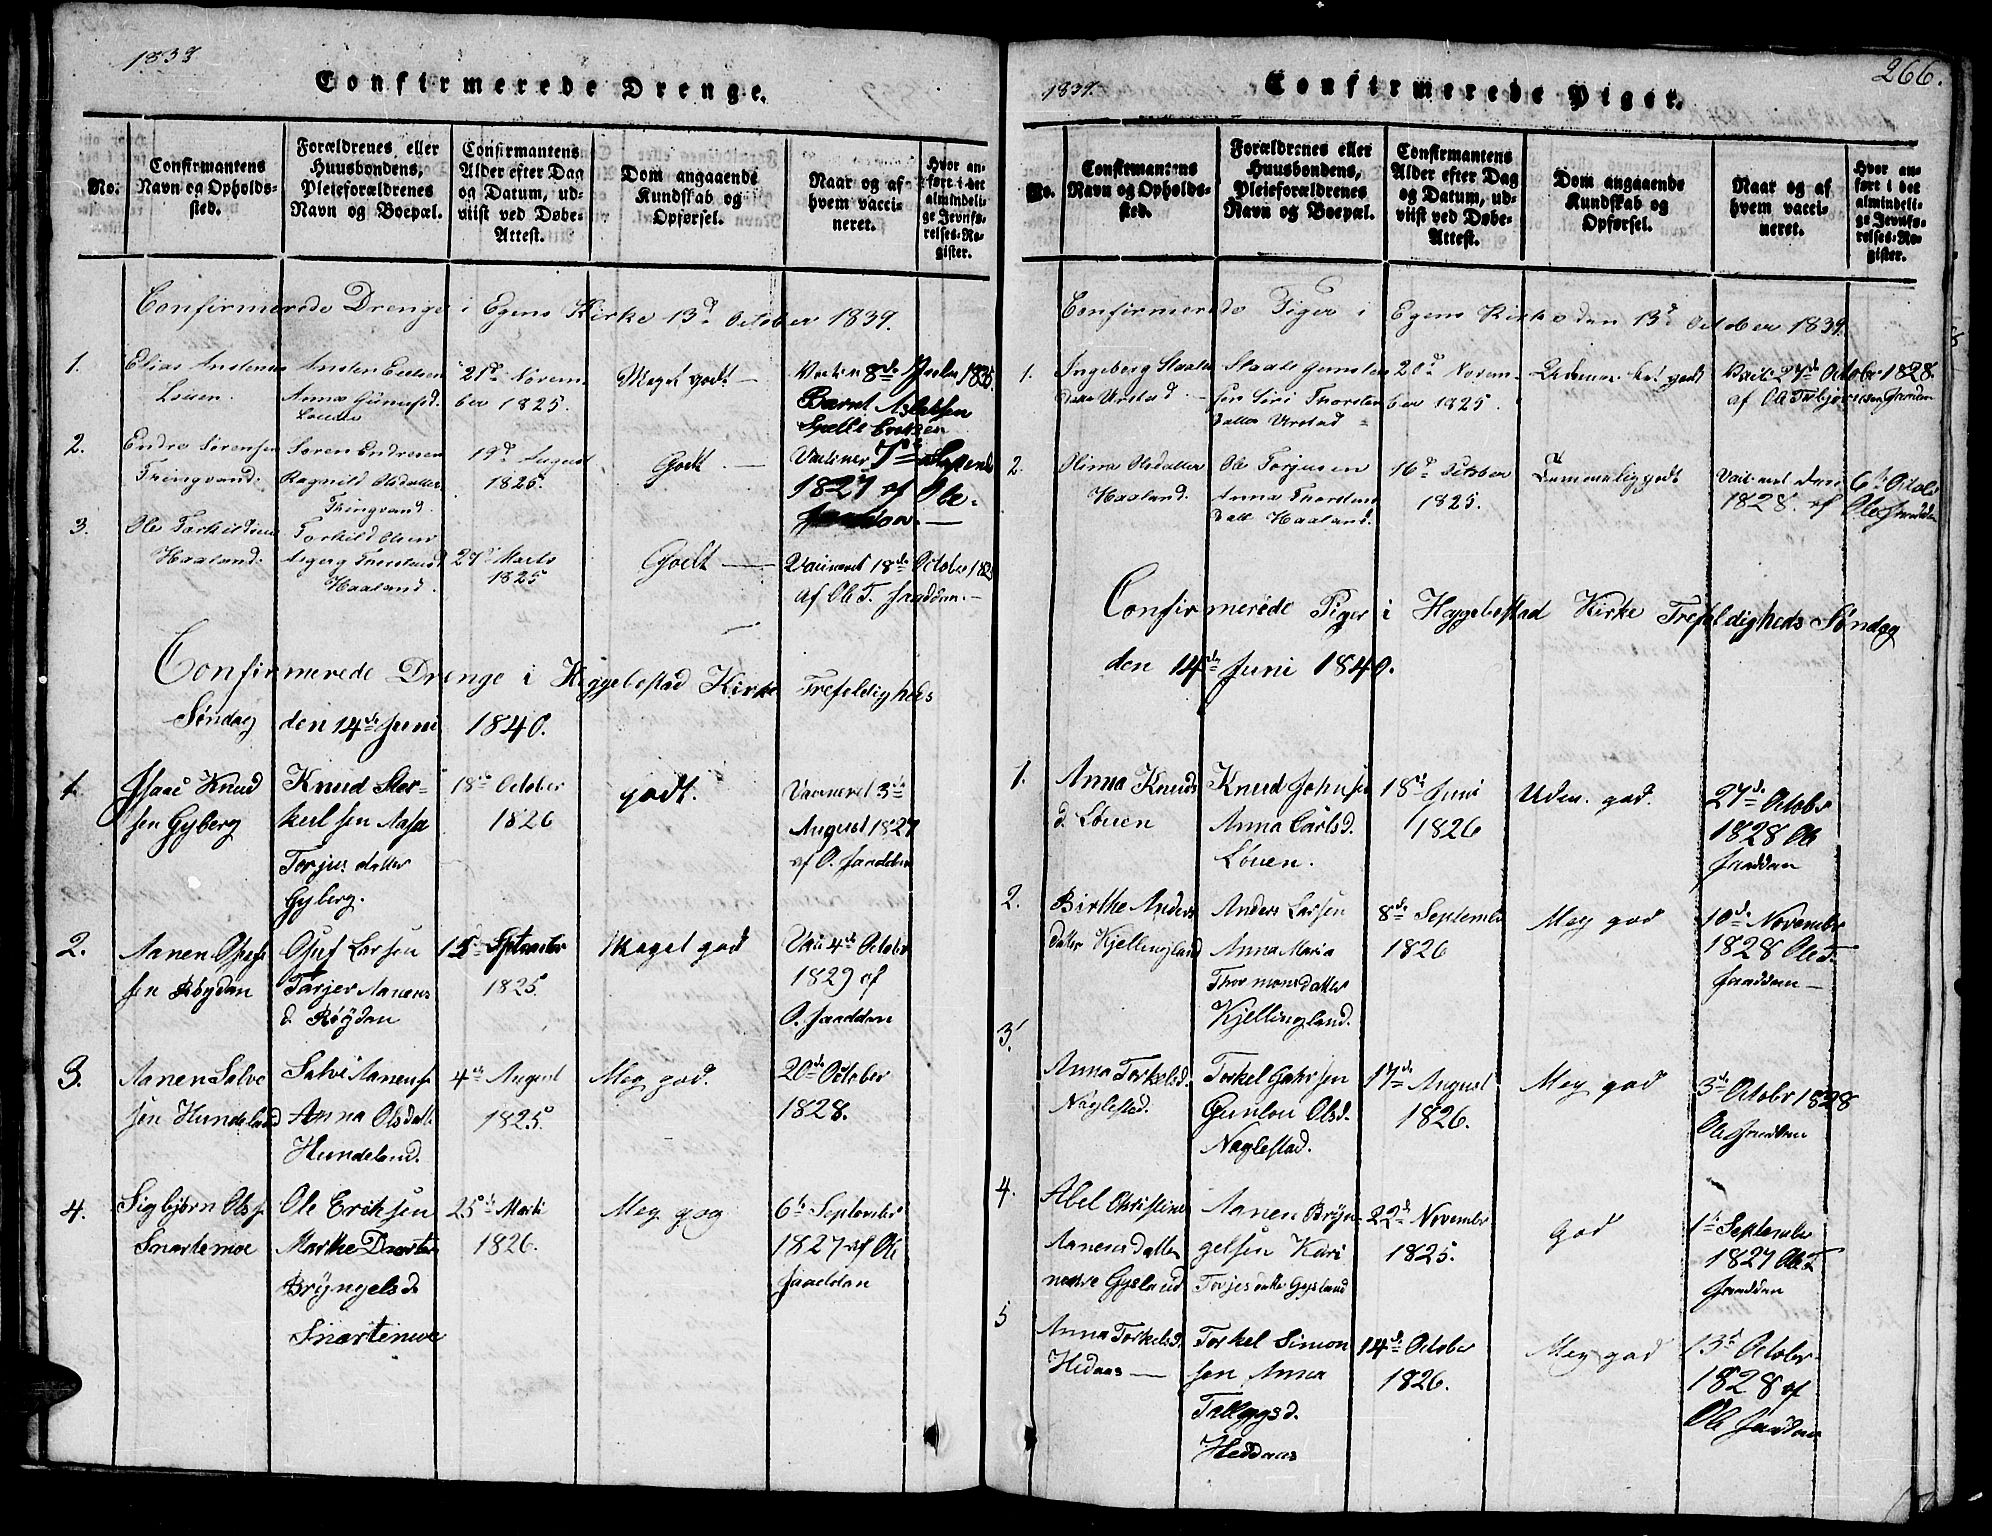 1839
Confirmerede Drenge.
No.
Confirmantens Navn og Opholdssted.
Forældrenes, eller Huusbondens, Pleieforældrenes Navn og Boepæl.
Confirmantens Alder efter Dag og Datum, udviist ved Døbe-Attest.
Dom angaaende Kundskab og Opførsel.
Naar og af hvem vaccineret.
Hvor anført i det almindelige Jevnførelses-Register.
Confirmerede Drenge i Egens Kirke 13de October 1839.
1.
Elias
Louen.
21de November 1825.
Meget godt —
8de
2.
Endre Sørensen
Tringvand.
Søren Endresen
Ragnild Olsdatter
Tringvand.
19de August
1825.
Godt —
1827 af Ole
3.
Ole Torkildsen
Haaland.
Torkild Olsen
Haaland.
27de Marts
1825
Godt —
Vaccineret 18de October
af Ole T. Jaaddan. —
Confirmerede Drenge i Heggebestad Kirke Trefoldigheds
Søndag den 14de Juni 1840.
1.
Isaac Knud
sen Gyberg
Knud Stor-
kerlsen Aasa
Torjusdatter
Gyberg.
18de October
1826
godt.
Vaccineret 3de
August 1827
af O. Jaaddan
2.
Aanen
sen Røydan
Larsen
Tarjer Aanens
d. Røydan
September
1825.
Meget god
Vacc 4de October
1829 af
O. Jaaddan
3.
Aanen Salve
sen Hundeland
Salve Aanensen
Anna Olsdatt.
Hundeland.
4de August
1825.
Meg. god.
20de October
1828.
4.
Sigbjørn Ols
Snartemoe
Ole Eriksen
Brÿngelsd.
Snartemoe
25de Marts
1826.
Meg god
6te September
1827 af Ole
Jaaddan
1839.
Confirmerede Piger.
266.
No.
Confirmantens Navn og Opholdssted.
Forældrenes eller Huusbondens, Pleieforældrenes Navn og Boepæl.
Confirmantens Alder efter Dag og Datum, udviist ved Døbe-Attest.
Dom angaaende Kundskab og Opførsel.
Naar og af hvem vaccineret.
Hvor anført i det almindelige Jevnførelses-Register.
Confirmerede Piger i Egens Kirke den 13de October 1839.
1.
Ingeborg Staale
datter Urstad
Staale
sen Siri Thorsten
datter Urstad
20de Novem-
ber 1825.
27de October 1828.
2.
Olsdatter
Haaland.
Ole Torjusen
Anna Thorstens
datt Haaland.
16de October
1825.
Temmelig godt
6te October
1828. af Ole Jaaddan
Confirmerede Piger i Heggebestad Kirke Trefoldigheds Søndag
den 14de Juni 1840.
1.
Anna Knuds
d. Løuen
Knud Johnsen
Anna Carlsd.
Løuen.
18de Juni
1826
Udm. god.
27de October
1828 Ole
Jaaddan
2.
Birthe Anders
datter Kjellingland
Anders Larsen
Anna Maria
Thormonsdatter
Kjellingland.
8de September
1826
Meg god
10de November
1828 Ole T.
Jaaddan —
3.
Anna Torkelsd.
Nøglestad.
Torkel
Gunlou Olsd.
Naglestad.
17de August
1826.
Meg god
3de October 1828
Ole Jaaddan
4.
Abel Christine
Aanensdatter
Gysland
Aanen Brÿn-
gelsen Kari
Torjesdatter Gysland
22de November
1825.
god
1te September
1827 Ole T
Jaaddan
5
Anna Torkelsd.
Hedaas —
Torkel Simon
sen Anna
Heddaas
14de October
1826.
Meg god
13de October
1828 af
Ole Jaaddan